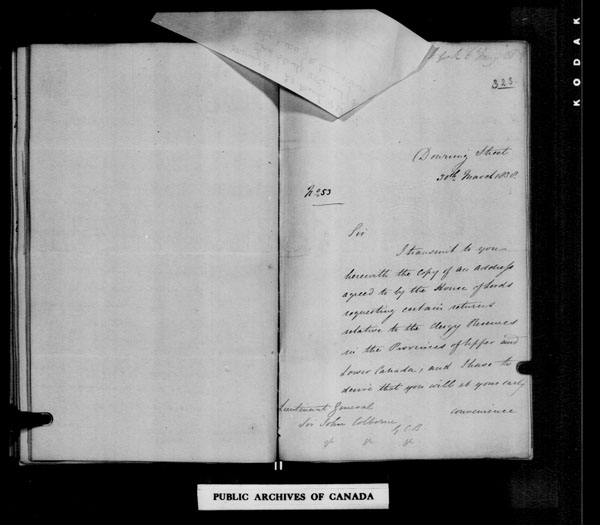 323
Downing Street
30th March 1838.
No 53
Sir
I transmit to you
herewith the copy of an address
agreed to by the House of Lords
requesting certain returns
relative to the Clergy Reserves
in the Provinces of Upper and
Lower Canada, and I have to
desire that you will at your early
convenience
Lieutenant General
Sir John Colborne
G.C.B
PUBLIC ARCHIVES OF CANADA
KODAK